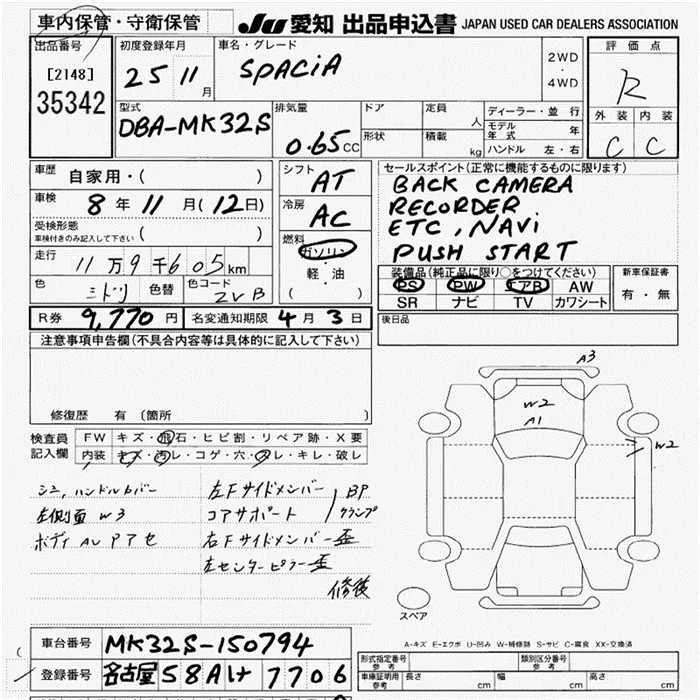 車内保管・守衛保管
JU 愛知 出品申込書 JAPAN USED CAR DEALERS ASSOCIATION
出品番号
[2148]
35342
初度登録年月
25 11 月
車名・グレード
SPACiA
2WD
・
4WD
評価点
R
外装 内装
C C
型式
DBA-MK32S
排気量
0.65 CC
ドア
定員
人
形状
積載
kg
ディーラー・並行
モデル年式 年
ハンドル 左・右
車歴
自家用・( )
車検
8 年 11 月 (12日)
受検形態
車検付きのみ記入して下さい ( )
走行
11 万 9 千 605 km
色
ミドリ
色替
色コード
ZVB
シフト
AT
冷房
AC
燃料
ガソリン
・
軽・油
( )
セールスポイント(正常に機能するものに限ります)
BACK CAMERA
RECORDER
ETC, NAVi
PUSH START
装備品(純正品に限り○をつけてください)
PS PW エアB AW
SR ナビ TV カワシート
新車保証書
有・無
R券 9,770 円 名変通知期限 4 月 3 日
後日品
注意事項申告欄(不具合内容等は具体的に記入して下さい)
修復歴 有 (箇所 )
検査員
記入欄
FW キズ・飛石・ヒビ割・リペア跡・X要
内装 キズ・汚レ・コゲ・穴・スレ・キレ・破レ
シュ,ハンドルカバー
左側面 W3
左Fサイドメンバー BP
コアサポート クランプ
右Fサイドメンバー歪
左センターピラー歪
修後
A3
W2
A1
W2
スペア
A-キズ E-エクボ U-凹み W-補修跡 S-サビ C-腐食 XX-交換済
車台番号 MK32S-150794
登録番号 名古屋 58A い 7706
形式指定番号
参考
類別区分番号
参考
車庫証明用
参考
長さ cm 幅 cm 高さ cm